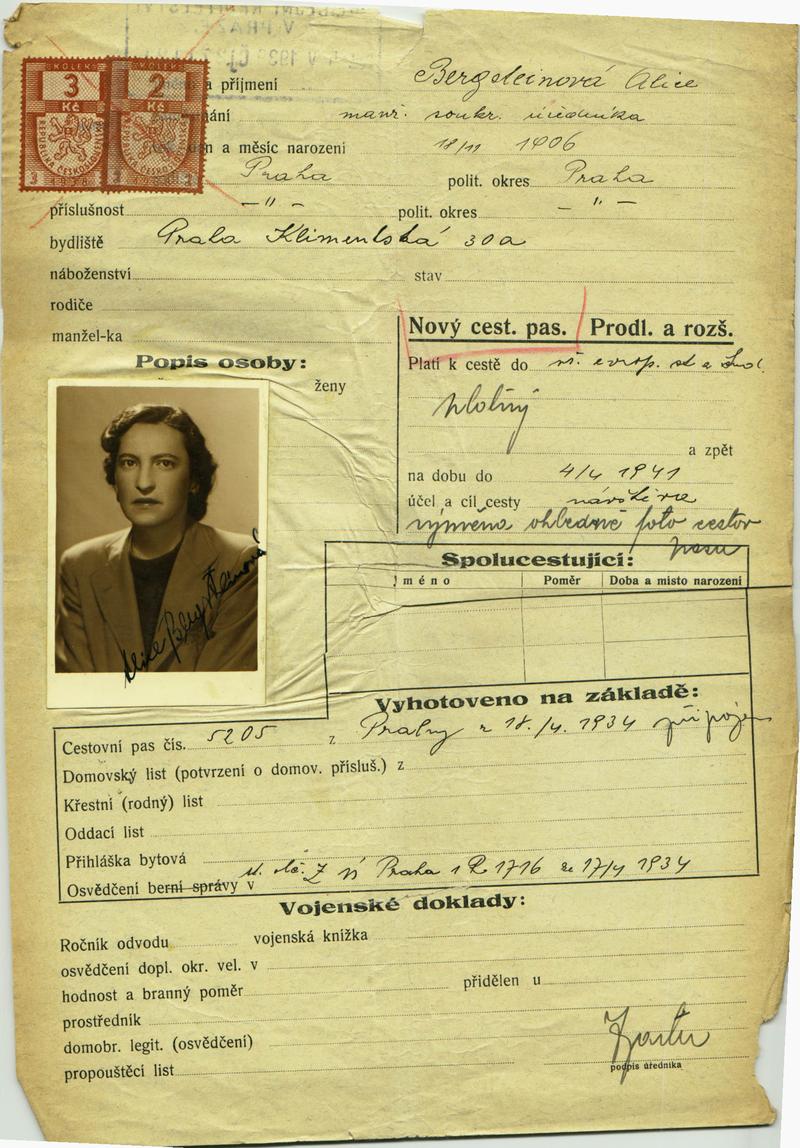 KOLEK KOLEK
3 Kč 2 Kč
REPUBLIKA ČESKOSLOVENSKÁ REPUBLIKA ČESKOSLOVENSKÁ
a příjmení Bergsteinová Alice
manž. soukr. úředníka
a měsíc narození 18/11 1906
Praha polit. okres Praha
příslušnost —"— polit. okres —"—
bydliště Praha Klimentská 30a
náboženství stav
rodiče
manžel-ka
Nový cest. pas. Prodl. a rozš.
Popis osoby:
ženy
Platí k cestě do vš. evrop. st a
a zpět
na dobu do 4/4 1941
účel a cíl cesty návštěva
výměna ohledně foto cestov
pasu
Alice Bergsteinová
Spolucestující:
Jméno Poměr Doba a místo narození
Vyhotoveno na základě:
Cestovní pas čís. 5205 z Prahy z 18./4. 1934 připojen
Domovský list (potvrzení o domov. přísluš.) z
Křestní (rodný) list
Oddací list
Přihláška bytová
Osvědčení berní správy v Praha 1716 ze 17/4 1934
Vojenské doklady:
Ročník odvodu vojenská knížka
osvědčení dopl. okr. vel. v
hodnost a branný poměr přidělen u
prostředník
domobr. legit. (osvědčení)
propouštěcí list
podpis úředníka